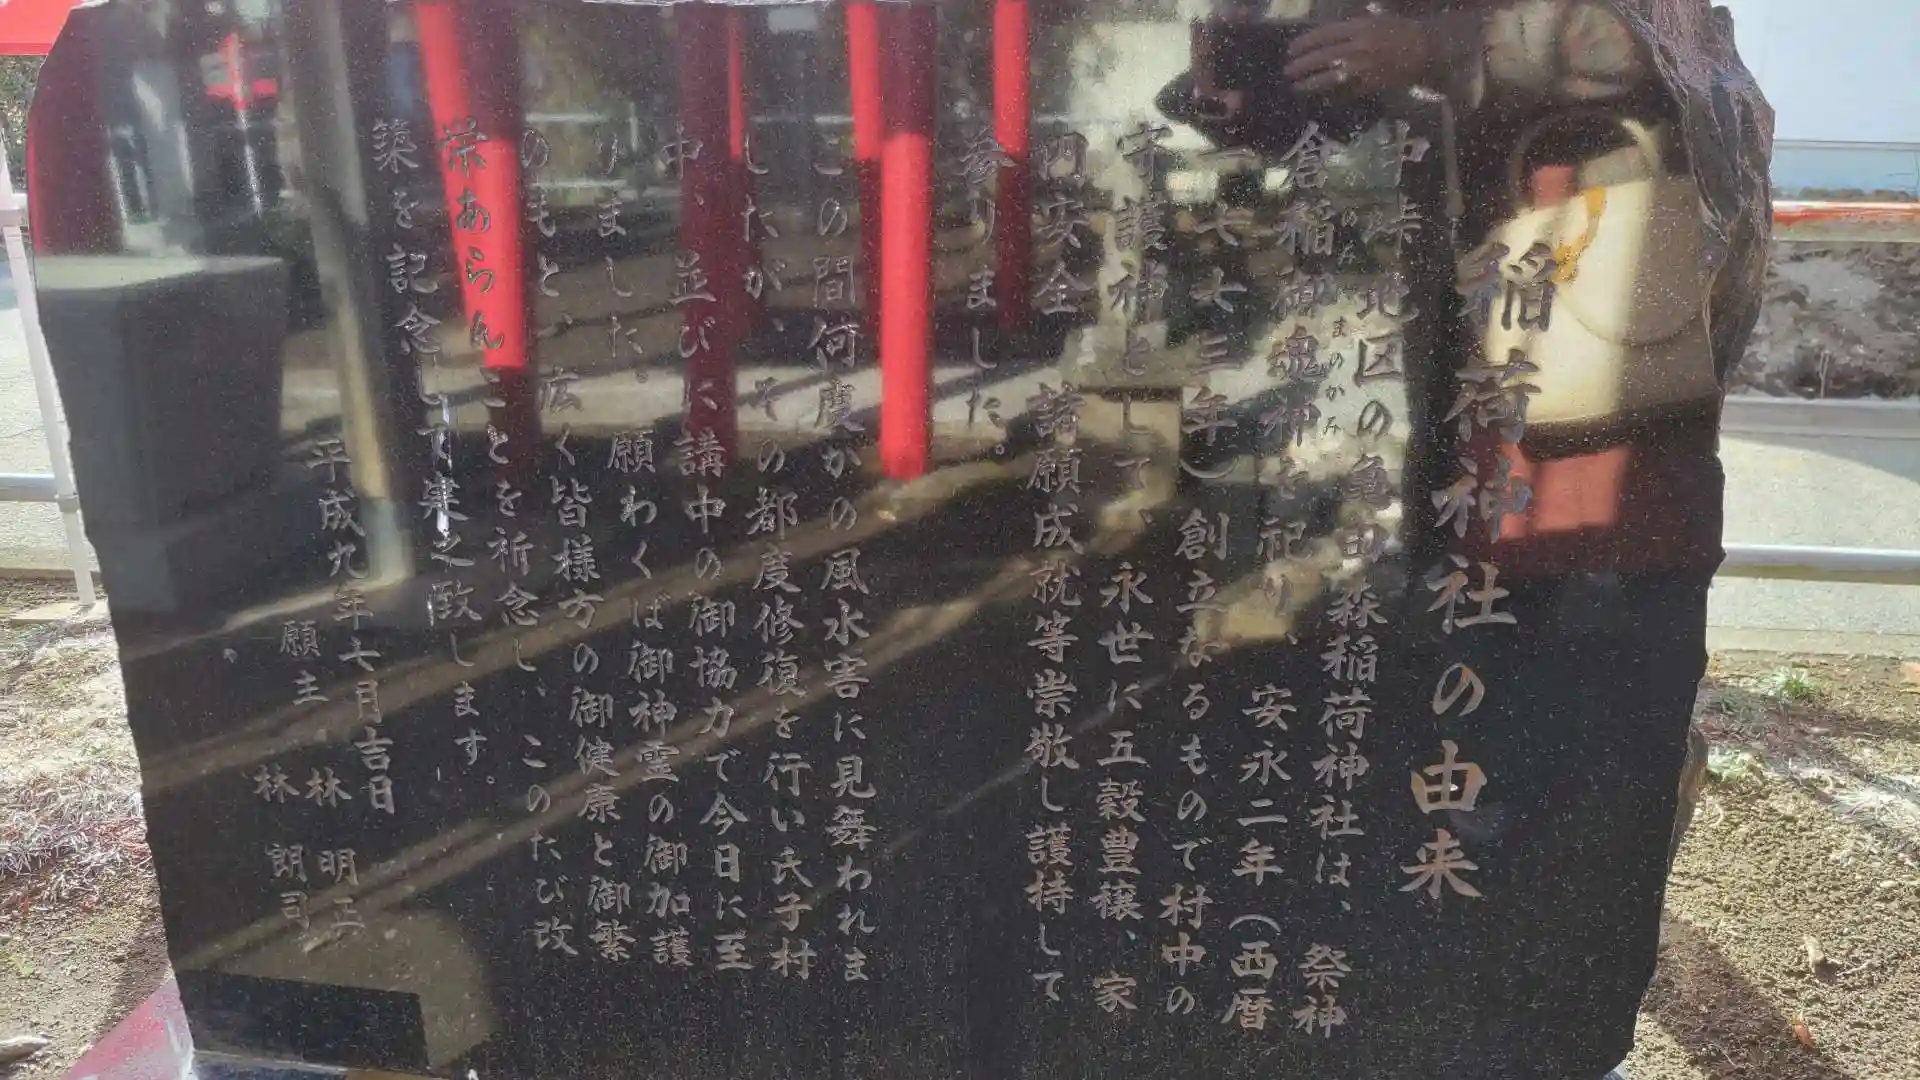 稲荷神社の由来
中峠地区の亀田森稲荷神社は、祭神
倉稲御魂神を祀り、安永二年(西暦
一七七三年)創立なるもので村中の
守護神として、永世に五穀豊穣、家
内安全、諸願成就等崇敬し護持して
参りました。
この間何度かの風水害に見舞われま
したが、その都度修復を行い氏子村
中、並びに講中の御協力で今日に至
りました。願わくば御神霊の御加護
のもと、広く皆様方の御健康と御繁
栄あらんことを祈念し、このたび改
築を記念して寄之致します。
平成九年七月吉日
願主 林 明正
林 朗司